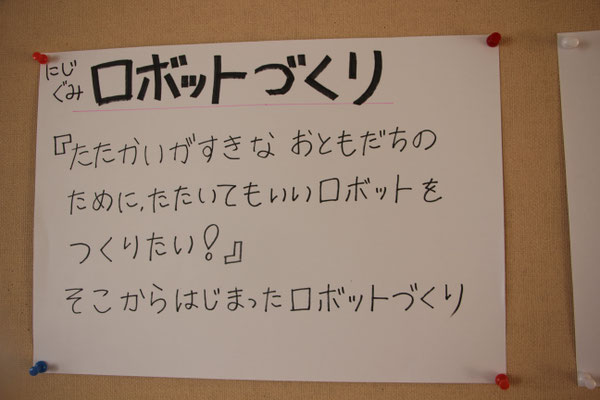 にじ
ぐみ ロボットづくり
『たたかいがすきな おともだちの
ために、たたいてもいいロボットを
つくりたい!』
そこからはじまったロボットづくり